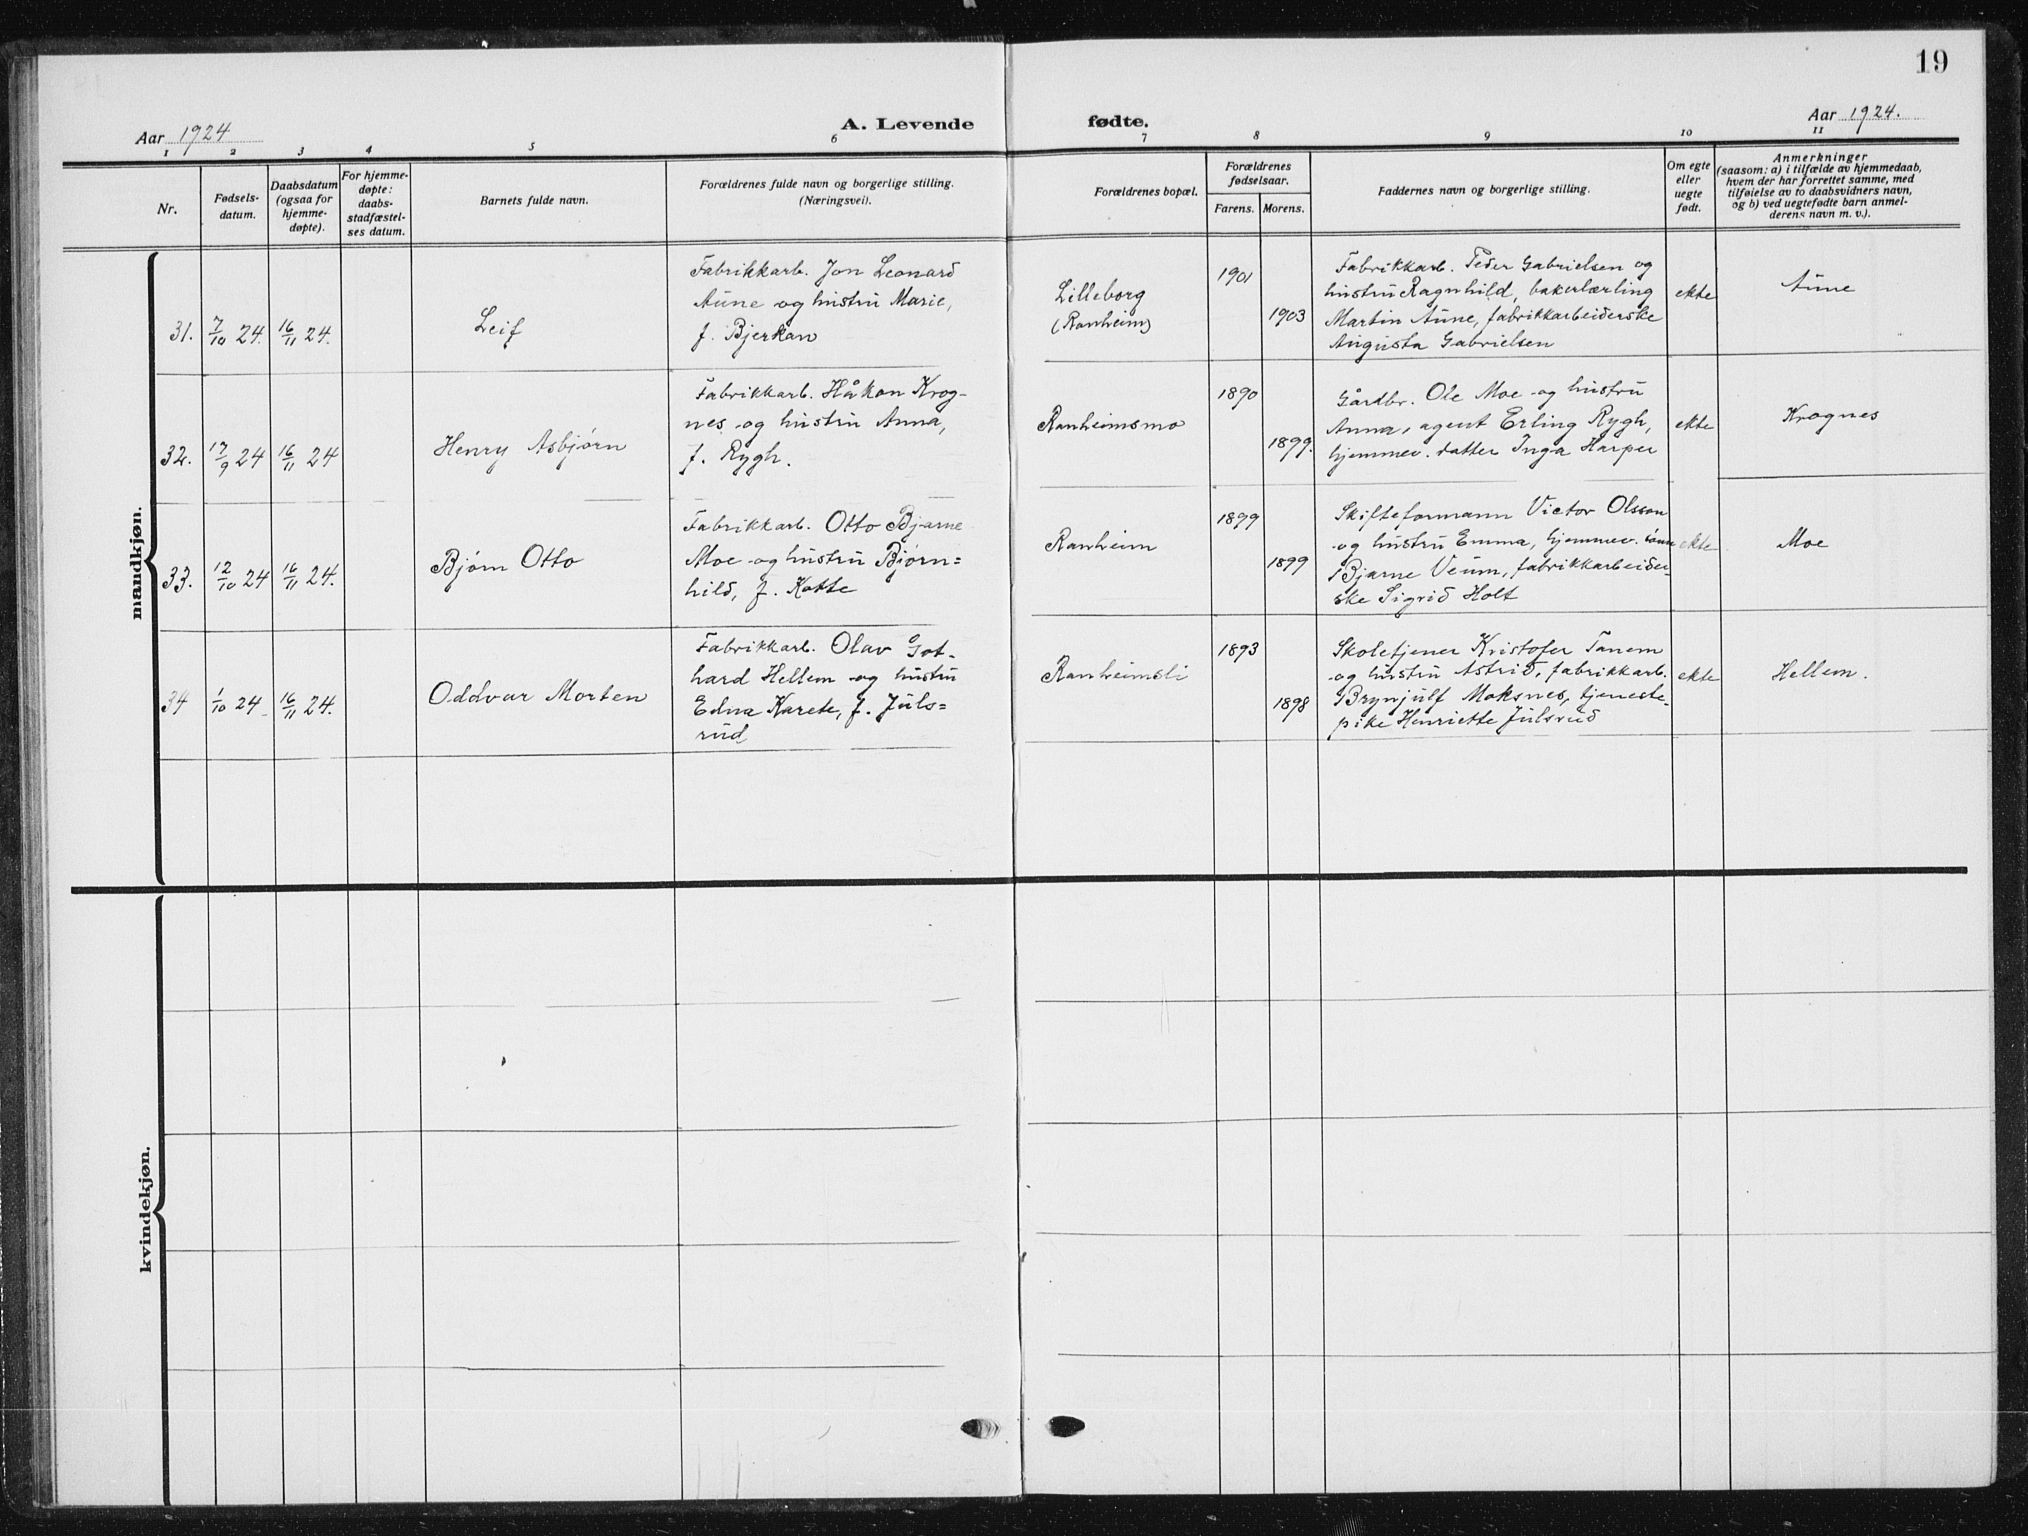 19
Aar 1924
A. Levende fødte.
Aar 1924.
1 2 3 4 5 6 7 8 9 10 11
Nr.
Fødsels-
datum.
Daabsdatum
(ogsaa for
hjemme-
døpte).
For hjemme-
døpte:
daabs-
stadfæstel-
ses datum.
Barnets fulde navn.
Forældrenes fulde navn og borgerlige stilling.
(Næringsvei).
Forældrenes bopæl.
Forældrenes
fødselsaar.
Farens. Morens.
Faddernes navn og borgerlige stilling.
Om egte
eller
uegte
født.
Anmerkninger
(saasom: a) i tilfælde av hjemmedaab,
hvem der har forrettet samme, med
tilføielse av to daabsvidners navn,
og b) ved uegtefødte barn anmel-
derens navn m. v.).
mandkjøn.
31. 7/10 24. 16/11 24.
Leif
Fabrikkarb. Jon Leonard
Aune og hustru Marie,
f. Bjerkan
Lilleborg
(Ranheim)
1901
1903
Fabrikkarb. Peder Gabrielsen og
hustru Ragnhild, bakerlærling
Martin Aune, fabrikkarbeiderske
Augusta Gabrielsen
ekte
Aune
32. 17/9 24 16/11 24
Henry Asbjørn
Fabrikkarb. Håkon Krog-
nes og hustru Anna,
f. Rygh.
Ranheimsmo
1890
1899.
Gårdbr. Ole Moe og hustru
Anna, agent Erling Rygh,
hjemmev. datter Inga Harper
ekte
Krognes
33. 12/10 24 16/11 24.
Bjørn Otto
Fabrikkarb. Otto Bjarne
Moe og hustru Bjørn=
hild, f. Kotte
Ranheim
1899
1899
Skifteformann Victor Olsson
og hustru Emma, hjemmev. sønn
Bjarne Veum, fabrikkarbeider-
ske Sigrid Holt
ekte
Moe
34 1/10 24. 16/11 24.
Oddvar Morten
Fabrikkarb. Olav Got-
hard Hellem og hustru
Edna Karete, f. Juls=
rud
Ranheimsli
1893
1898
Skoletjener Kristofer Tanem
og hustru Astrid, fabrikkarb.
Brynjulf Moksnes, tjeneste-
pike Henriette Julsrud
ekte
Hellem.
kvindekjøn.